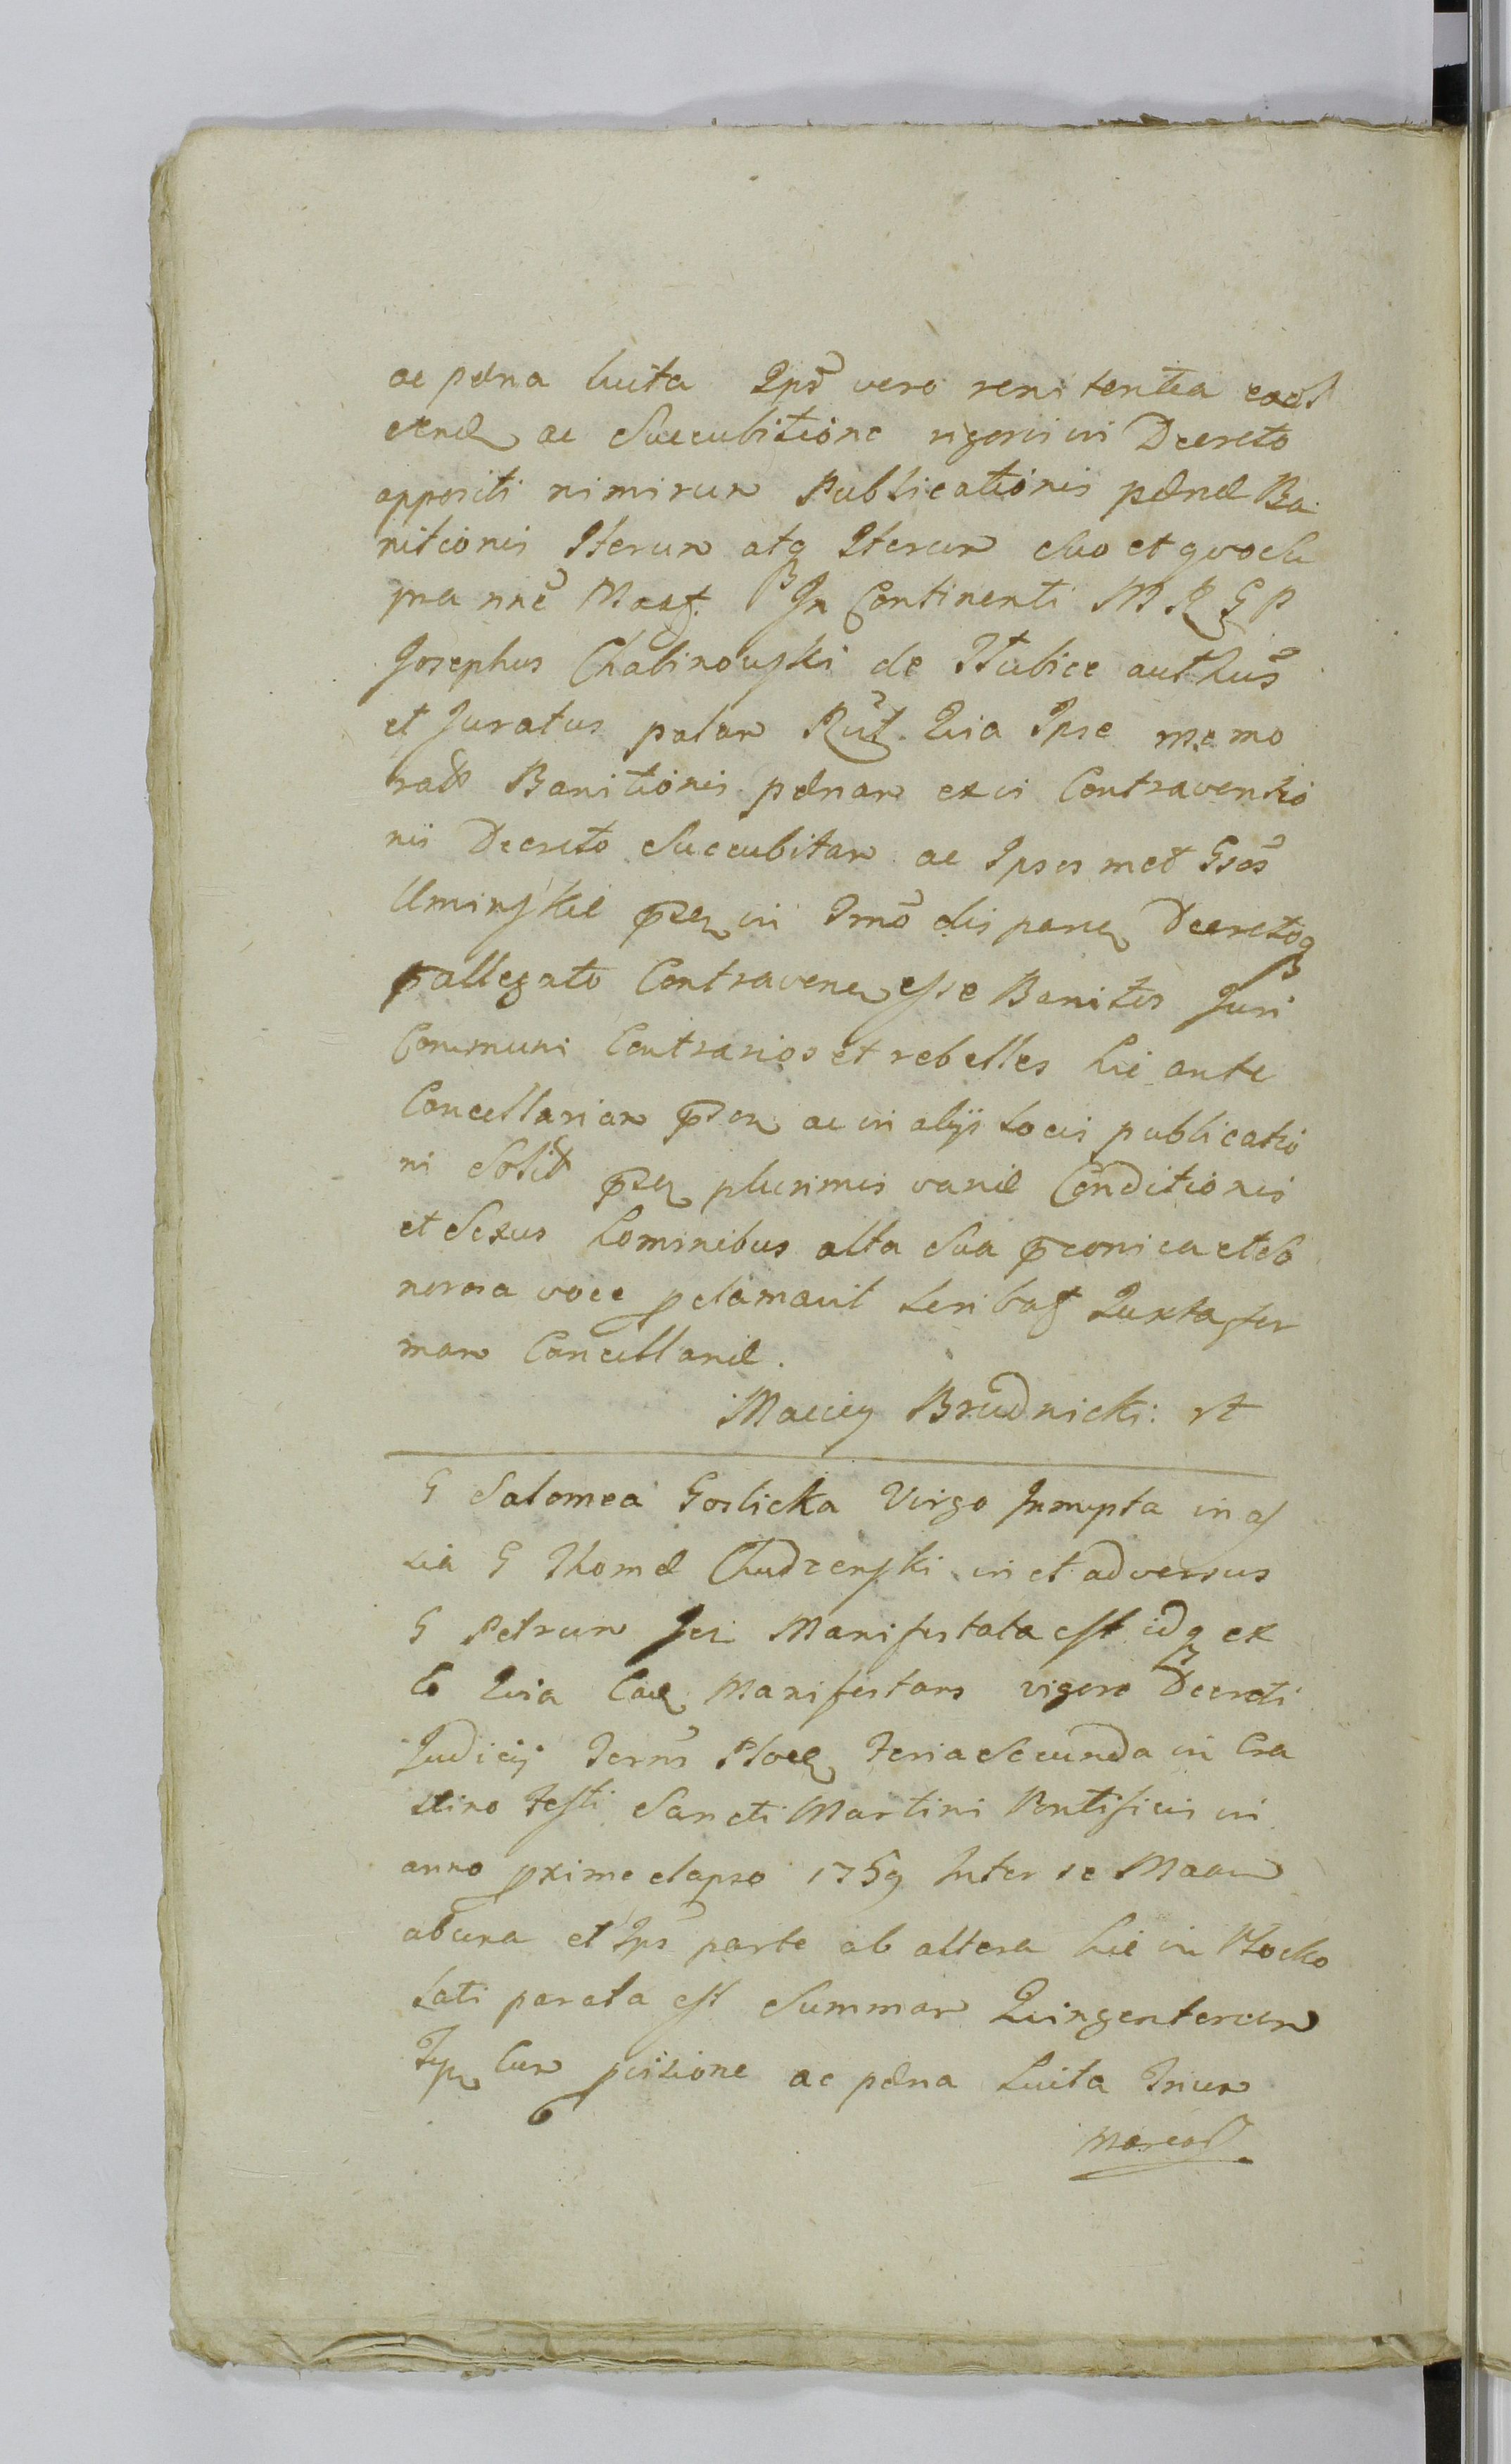 ac pæna luita Ips vero renitentia
ac Succubitione rigori in Decreto
appositi nimirum Publicationis pænæ Ba
nitionis Iterum atq Iterum Suo et quo Su
pra nñe Manf. In Continenti M R G P
Josephus Chabinowski de authūs
et Juratus palam Rūt. Quia Ipse memo
rat Banitionis pænam ex vi Contraventio
nis Decreto Succubitam ac Ipsos met Gsos
Uminskie in Trno dis paren Decretoq
pallegato Contraven esse Banitos Juri
Communi Contrarios et rebelles hic ante
Cancellariam pñsem ac in alijs Locis publicatio
ni Solit plurimis variæ Conditionis
et Sexus hominibus alta Sua pconica et So
norosa voce pclamavit Juxta for
mam Cancellariæ.
Maciey Brudnicki: rt
G Salomea Goslicka Virgo Innupta in as
sia G Thomæ Chudzenski in et adversus
G Petrum Manifestata est idq ex
Eo Quia Eadæ Manifestans vigore Decreti
Judicij Terris Ploce Feria Secunda in Cra
stino Festi Sancti Martini Pontificis in
anno pxime elapso 1759 Inter se Manu
ab una et Ips parte ab altera hic in Plocko
Lati parata est Summam Quingentorum
Typ Cum pvisione ac pæna Luita Trium
Marcas